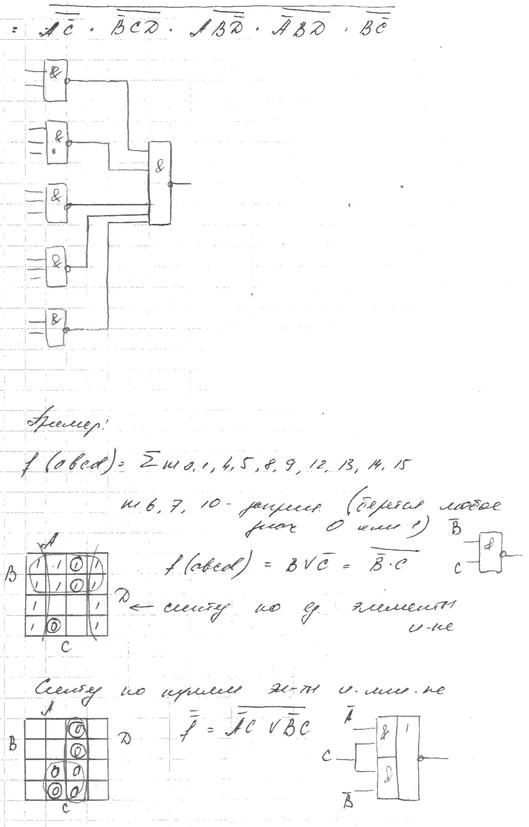 = A C̅ · B̅ C D · A B D̅ · A̅ B D · B C̅
&
&
&
&
&
&
Пример:
f (abcd) = Σ m 0, 1, 4, 5, 8, 9, 12, 13, 14, 15
m 6, 7, 10 - запрещ (берется любое
знач 0 или 1)
A
B
1 1 0 1
1 1 0 1
1 1
1 0 1
D
C
f (abcd) = B ∨ C̅ = B̅ · C
B̅
C
&
← синтез по ед элементы
и-не
Синтез по нулям эл-ты и-или-не
A
B
0
0
0 0
0 0
D
C
f = A̅ C ∨ B̅ C
A̅
C
B̅
&
&
1